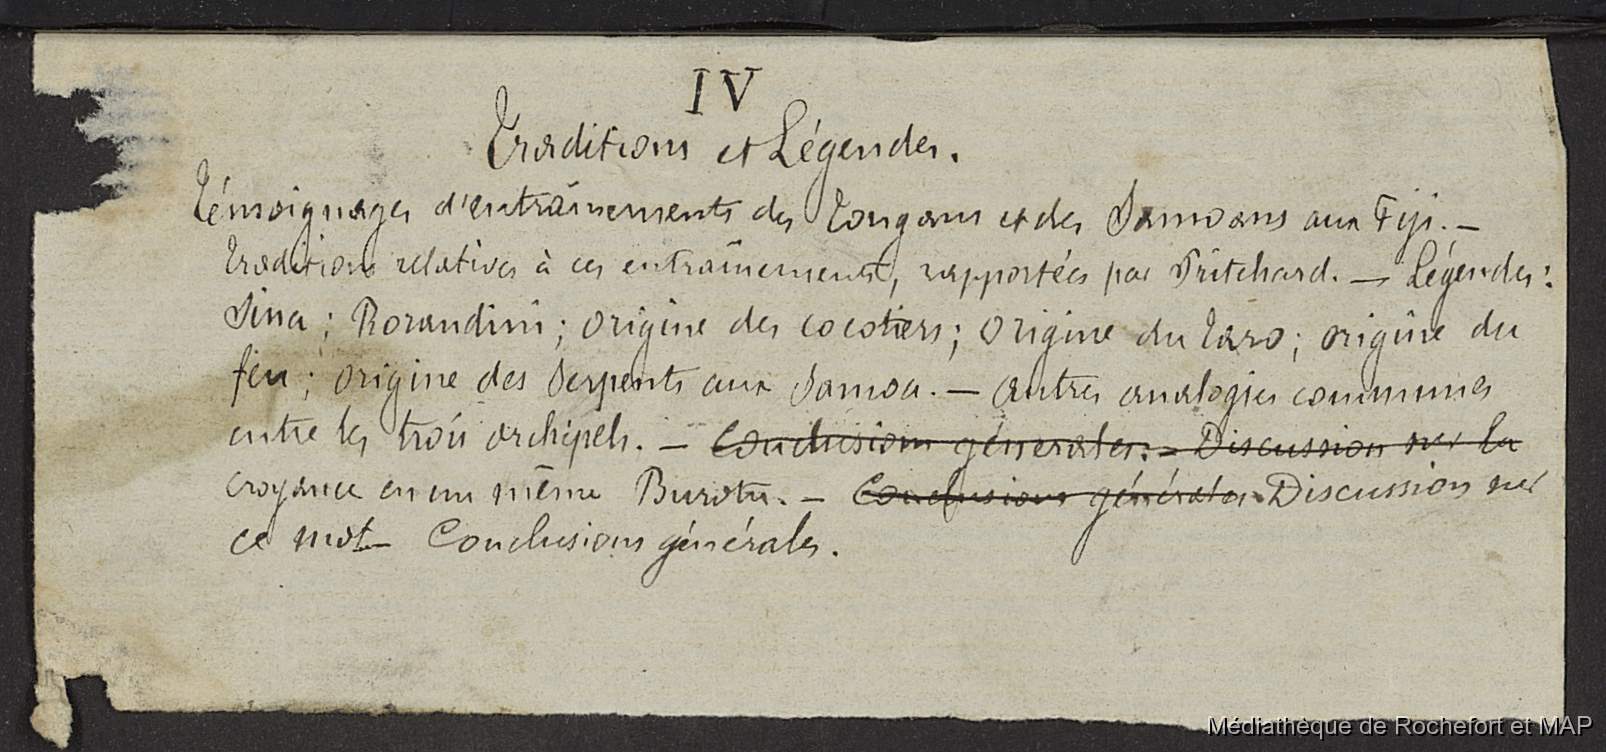 IV
Traditions et Légendes.
Témoignages d'entraînements des Tongans et des Samoans aux Fiji. —
Traditions relatives à ces entraînements, rapportées par Pritchard. — Légendes :
Sina ; Rorandini ; origine des cocotiers ; origine du taro ; origine du
feu ; origine des serpents aux Samoa. — Autres analogies communes
entre les trois archipels. — Conclusions générales. — Discussion sur la
croyance en un même Burotu. — Conclusions générales Discussion sur
ce mot — Conclusions générales.
Médiathèque de Rochefort et MAP